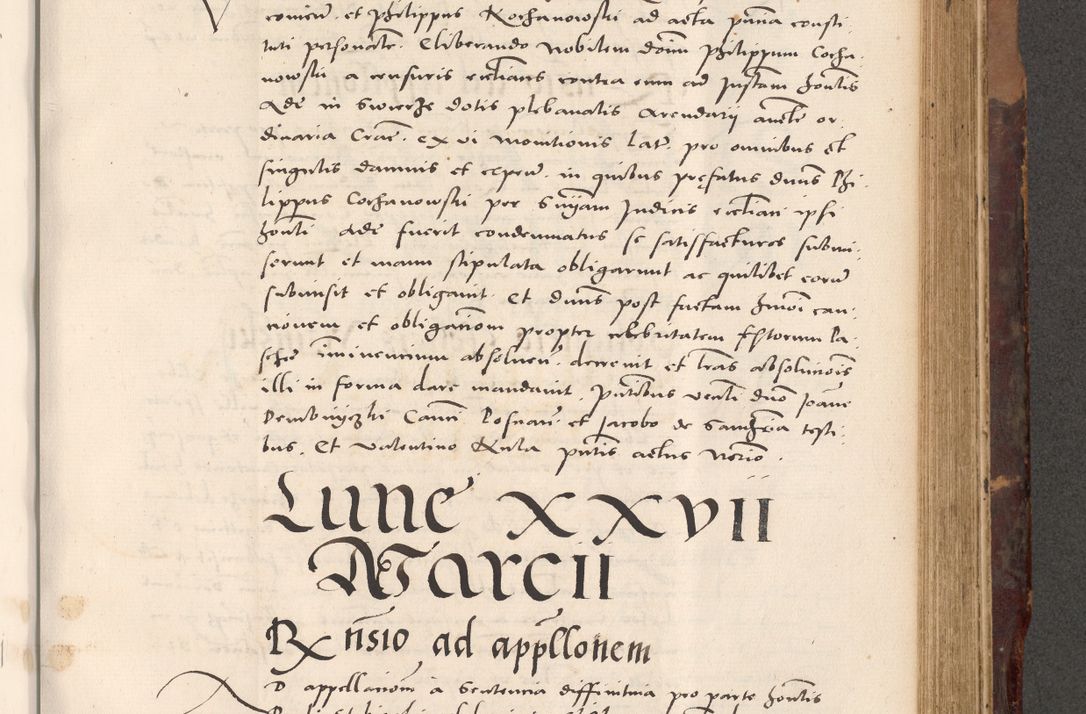 conieñ. et Philippus Kochanowski ad acta pñtia consti-
tuti personalr. Eliberando nobilem dominũ Philippum Cocha-
nowski a censuris ecclesiasticis contra eum ad Instam honestis
Ade in Swierze dotis plebanalis Arendarij auctte or-
dinaria Crac. ex vi monitionis lat. pro omnibus et
singulis damnis et expeñ. in quibus prefatus dnus Phi-
lippus Cochanowski per Sniam Judicis ecclesiastici ipsi
honesti Ade fuerit condemnatus se satisfacturos submi-
serunt et manu stipulata obligarunt ac quilibet eorũ
submisit et obligavit. Et dnus post factam hmõi cau-
tionem et obligationem propter celebritatem festorum Pa-
sche imminencium absolveñ. decrevit et lras absolutionis
illi in forma dare mandavit. pñtibus venli dno Joãne
Dembinyczki Canco Posnañ et Jacobo de Sandomiria testi-
bus. Et Valentino Kula pñtis actus Notrio.
Lune XXVII
Marcii
Rx nsio ad appllonem
D appellacionem a Sentencia diffinitiva pro parte honestis